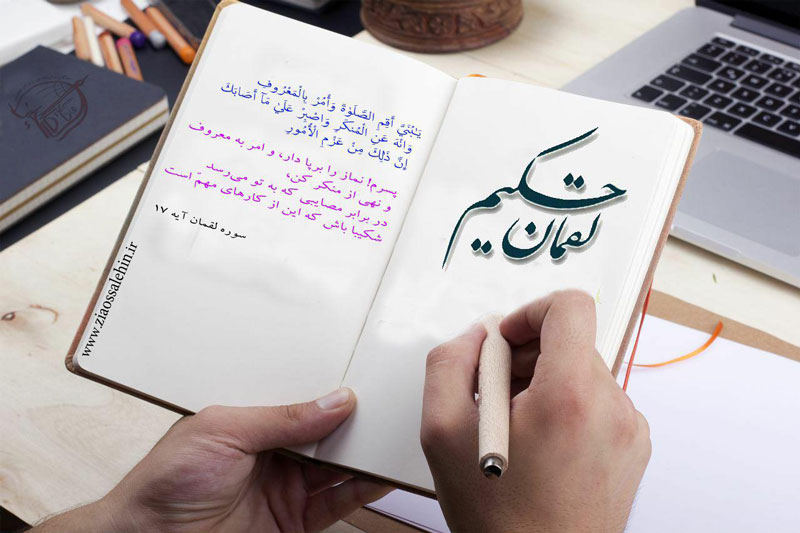 يَـٰبُنَيَّ أَقِمِ الصَّلَوٰةَ وَأْمُرْ بِالْمَعْرُوفِ
وَانْهَ عَنِ الْمُنكَرِ وَاصْبِرْ عَلَىٰ مَآ أَصَابَكَ
إِنَّ ذَٰلِكَ مِنْ عَزْمِ الْأُمُورِ
پسرم! نماز را برپا دار، و امر به معروف
و نهی از منکر کن،
در برابر مصایبی که به تو می‌رسد
شکیبا باش که این از کارهای مهمّ است
سوره لقمان آیه ۱۷
www.ziaossalehin.ir
لقمان
حکیم